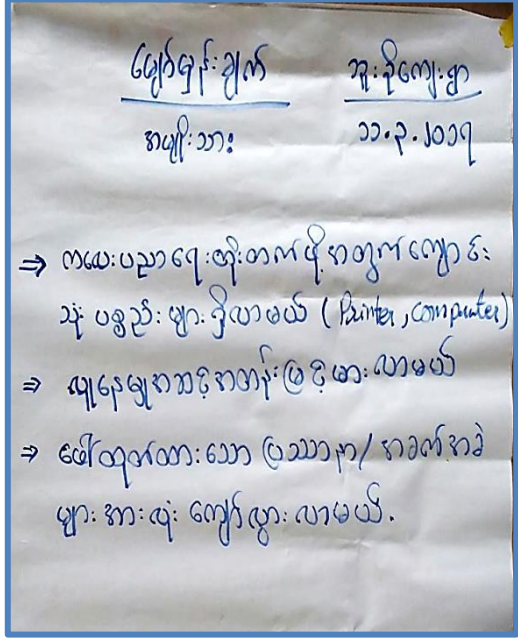 မျှော်မှန်းချက် ဘူးခိုကျေးရွာ
အမျိုးသား ၁၁.၃.၂၀၁၇
⇒ ကလေးပညာရေးတိုးတက်ဖို့အတွက်ကျောင်း
သုံး ပစ္စည်းများရှိလာမယ် (Printer, computer)
⇒ လူနေမှုအဆင့်အတန်းမြင့်မားလာမယ်
⇒ ဖော်ထုတ်ထားသော ပြဿနာ/အခက်အခဲ
များအားလုံး ကျော်လွှားလာမယ်.